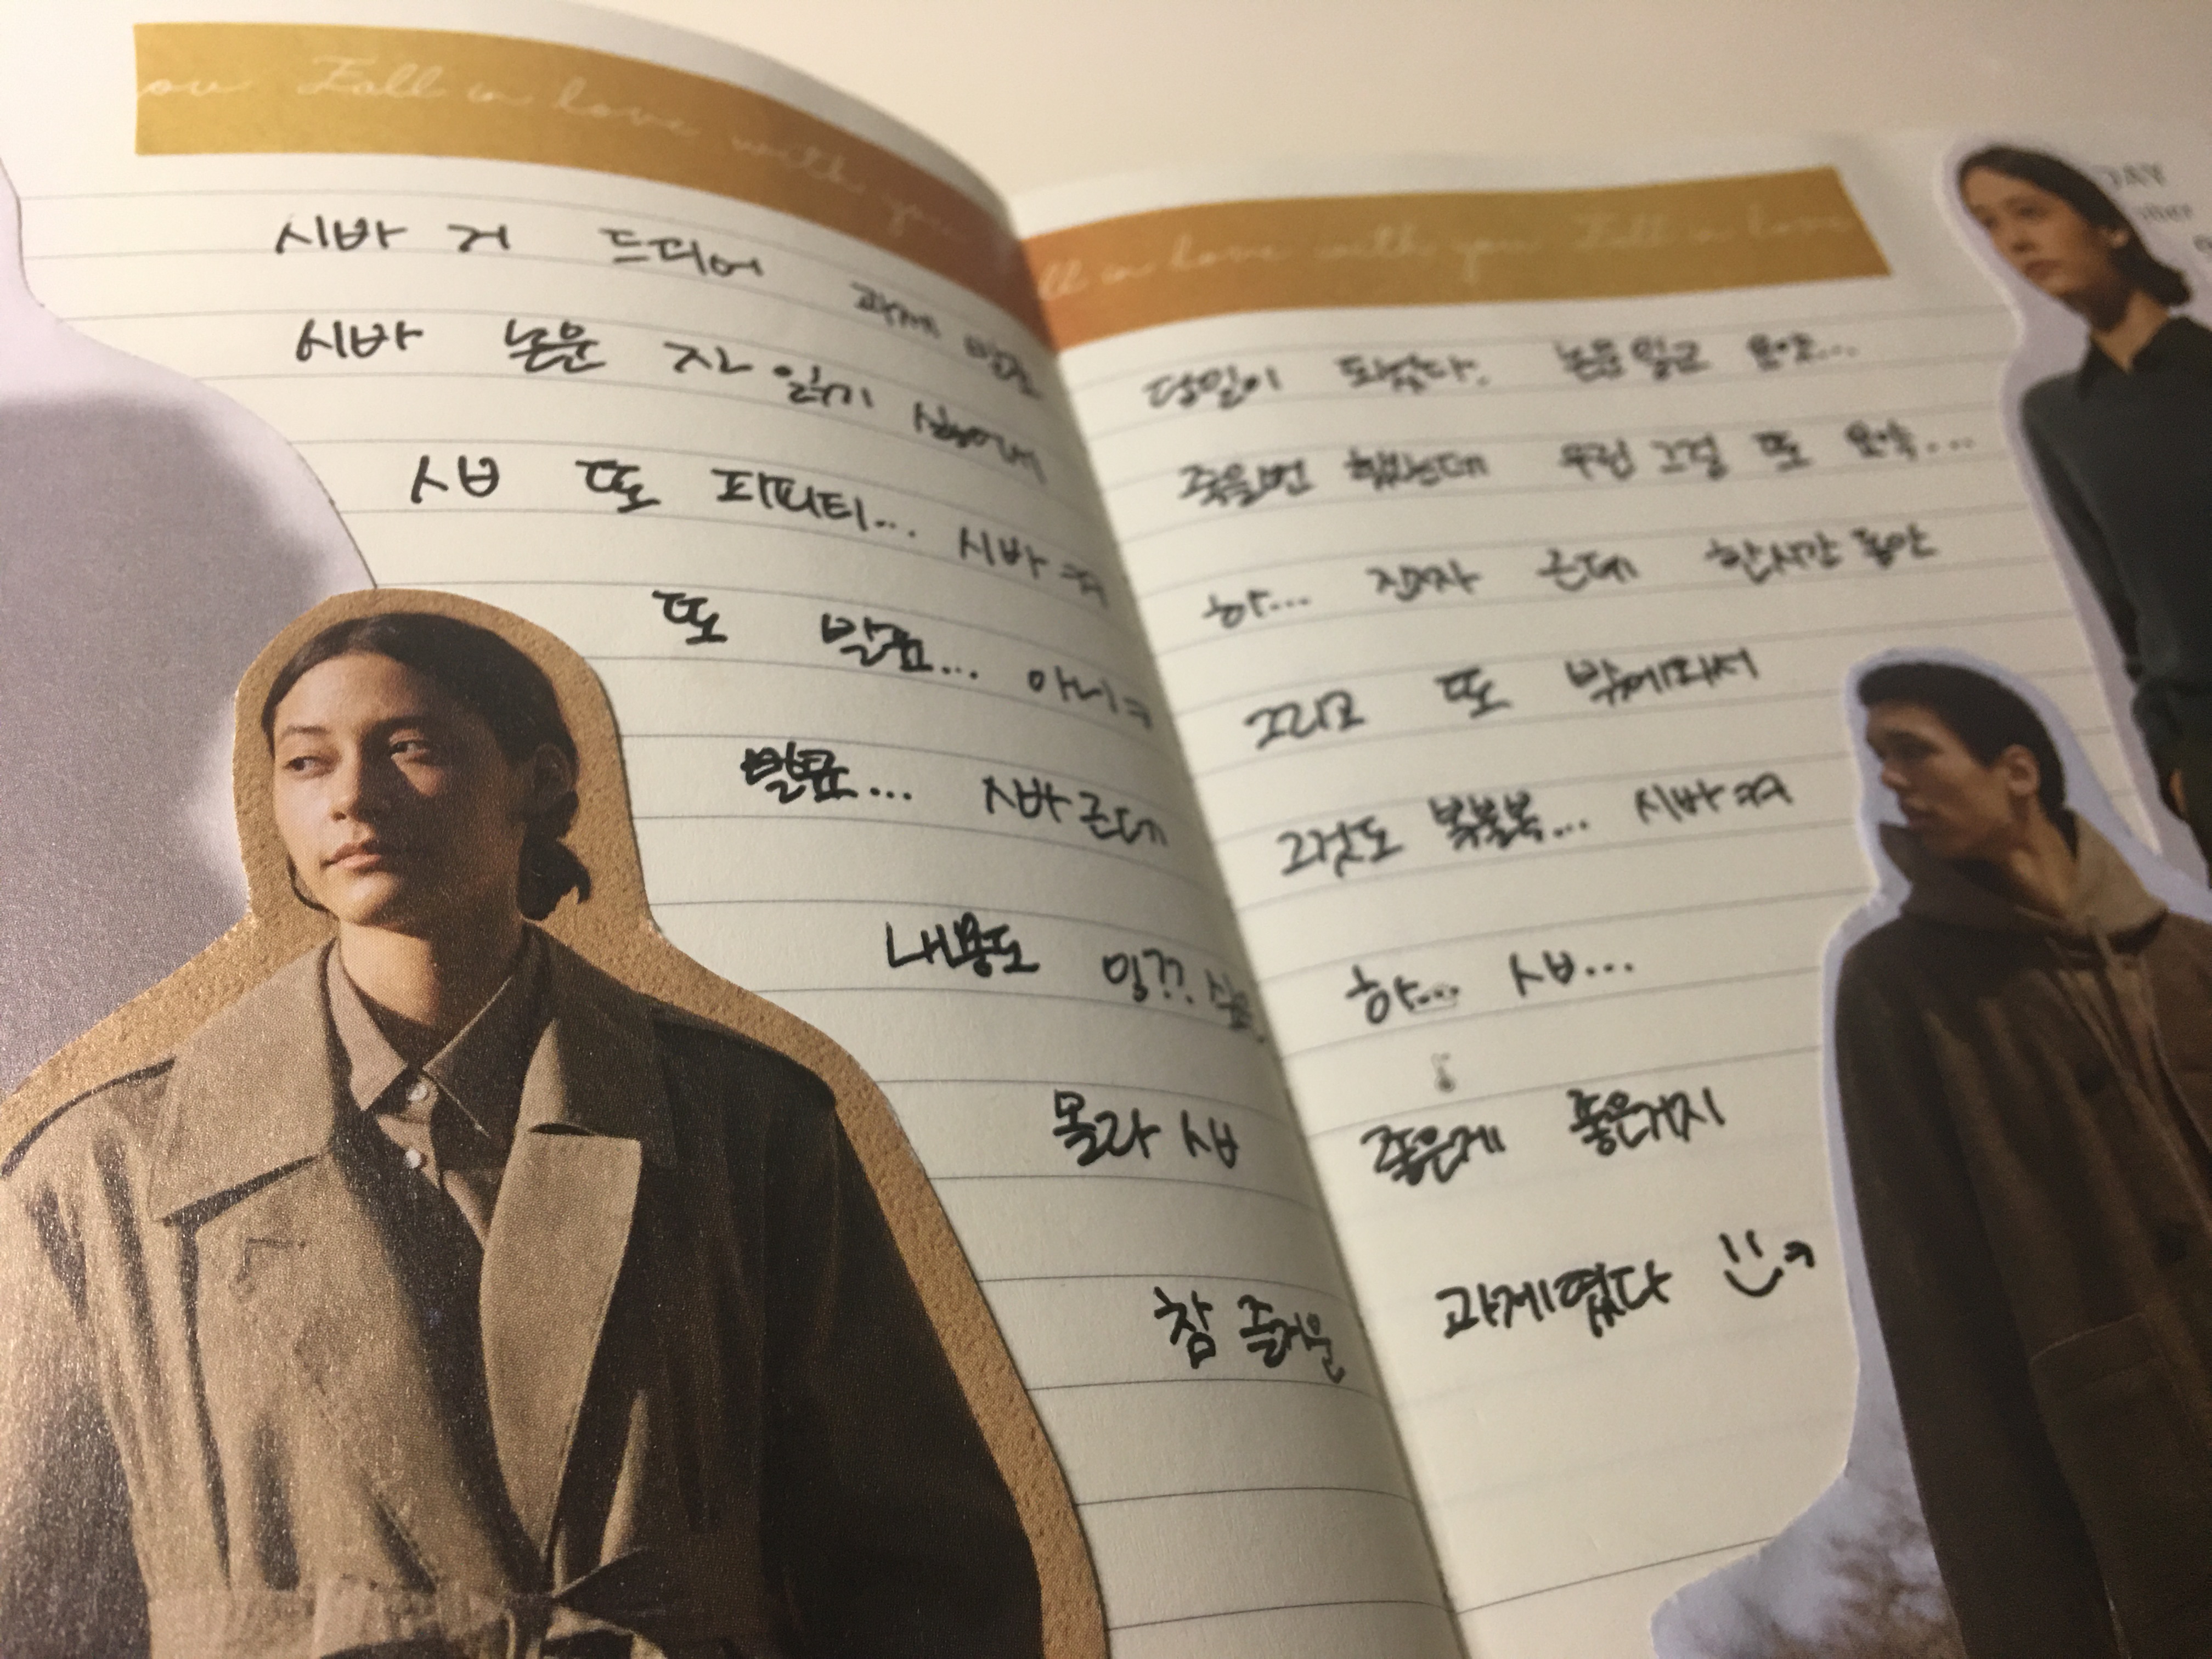 ou Fall in love with you
시바 거 드디어 과제 발표
시바 논문 자 읽기
시바 또 피피티... 시바 ㅋㅋ
또 발표... 아니ㅋ
발표... 시바 근데
내용도 잉??
몰라 시바
참 즐거운
ll in love with you Fall in love
당일이 되었다. 논문 읽고 요약...
죽을뻔 했는데 우린 그걸 또 요약...
하... 진짜 근데 한시간 동안
그리고 또 밖에 나와서
그것도 복불복... 시바 ㅋㅋ
하... 시바...
좋은게 좋은거지
과제였다 ㅋ
DAY